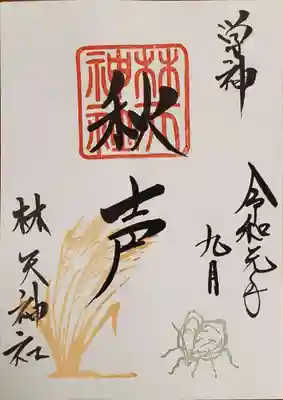 学神
令和元年
九月
林天
神社
秋声
林天神社